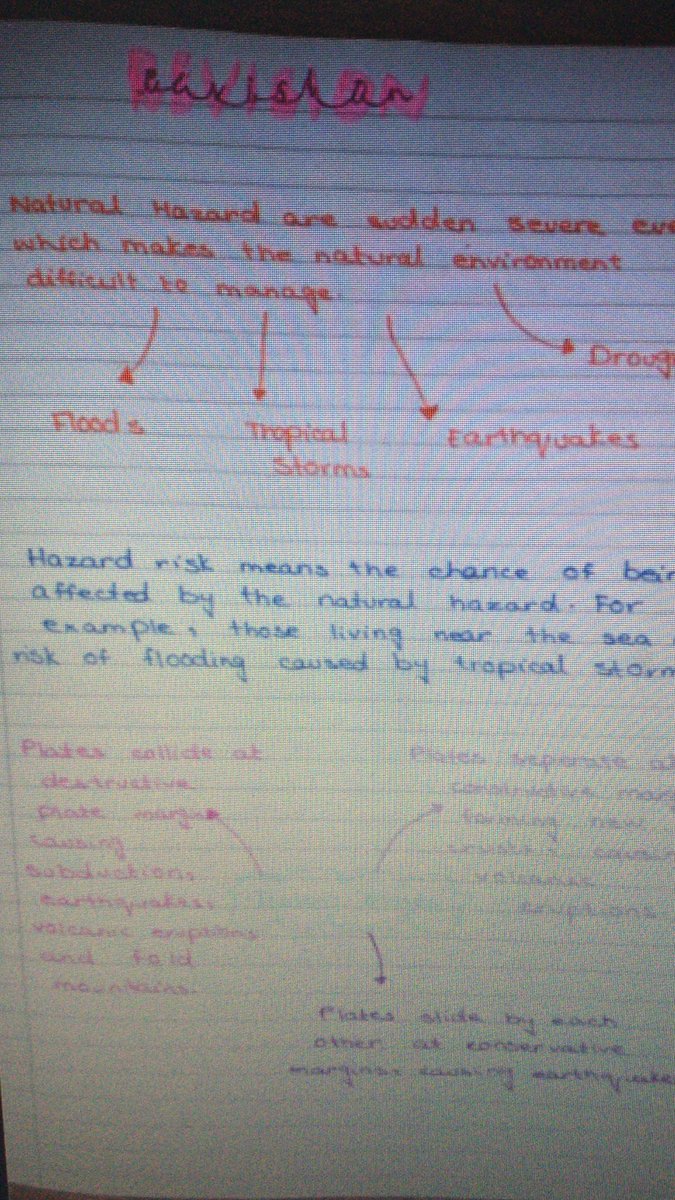 Pakistan
Natural Hazard are sudden severe
which makes the natural environment
difficult to manage.
Floods
Tropical
Storms
Earthquakes
Droug
Hazard risk means the chance of bein
affected by the natural hazard. For
example, those living near the sea
risk of flooding caused by tropical storm
Plates collide at
destructive
plate margins
causing
subduction,
earthquakes,
volcanic eruptions
and fold
mountains.
Plates separate at
constructive marg
forming new
crusts causin
volcanic
eruptions
Plates slide by each
other at conservative
margins causing earthquakes